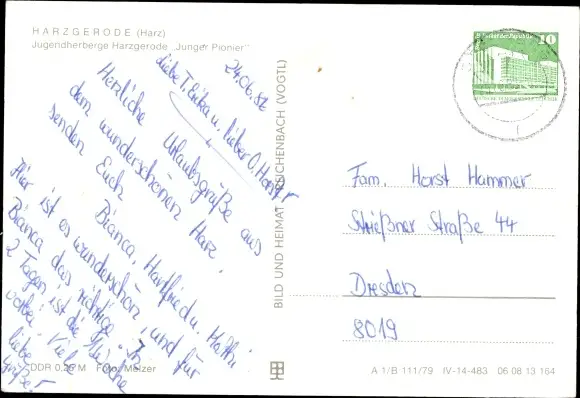 HARZGERODE (Harz)
Jugendherberge Harzgerode „Junger Pionier"
24.06.82
Liebe T. Erika u. lieber O. Horst
Herzliche Urlaubsgrüße aus
dem wunderschönen Harz
senden Euch
Bianca, Hartfried u. Kathi
Hier ist es wunderschön, und für
Bianca das richtige. In
2 Tagen ist die Woche
vorbei. Viele
liebe
Grüße
DDR 0,25 M Foto: Mälzer
BILD UND HEIMAT REICHENBACH (VOGTL)
10
Fam. Horst Hammer
Strießner Straße 44
Dresden
8019
A 1/B 111/79 IV-14-483 06 08 13 164